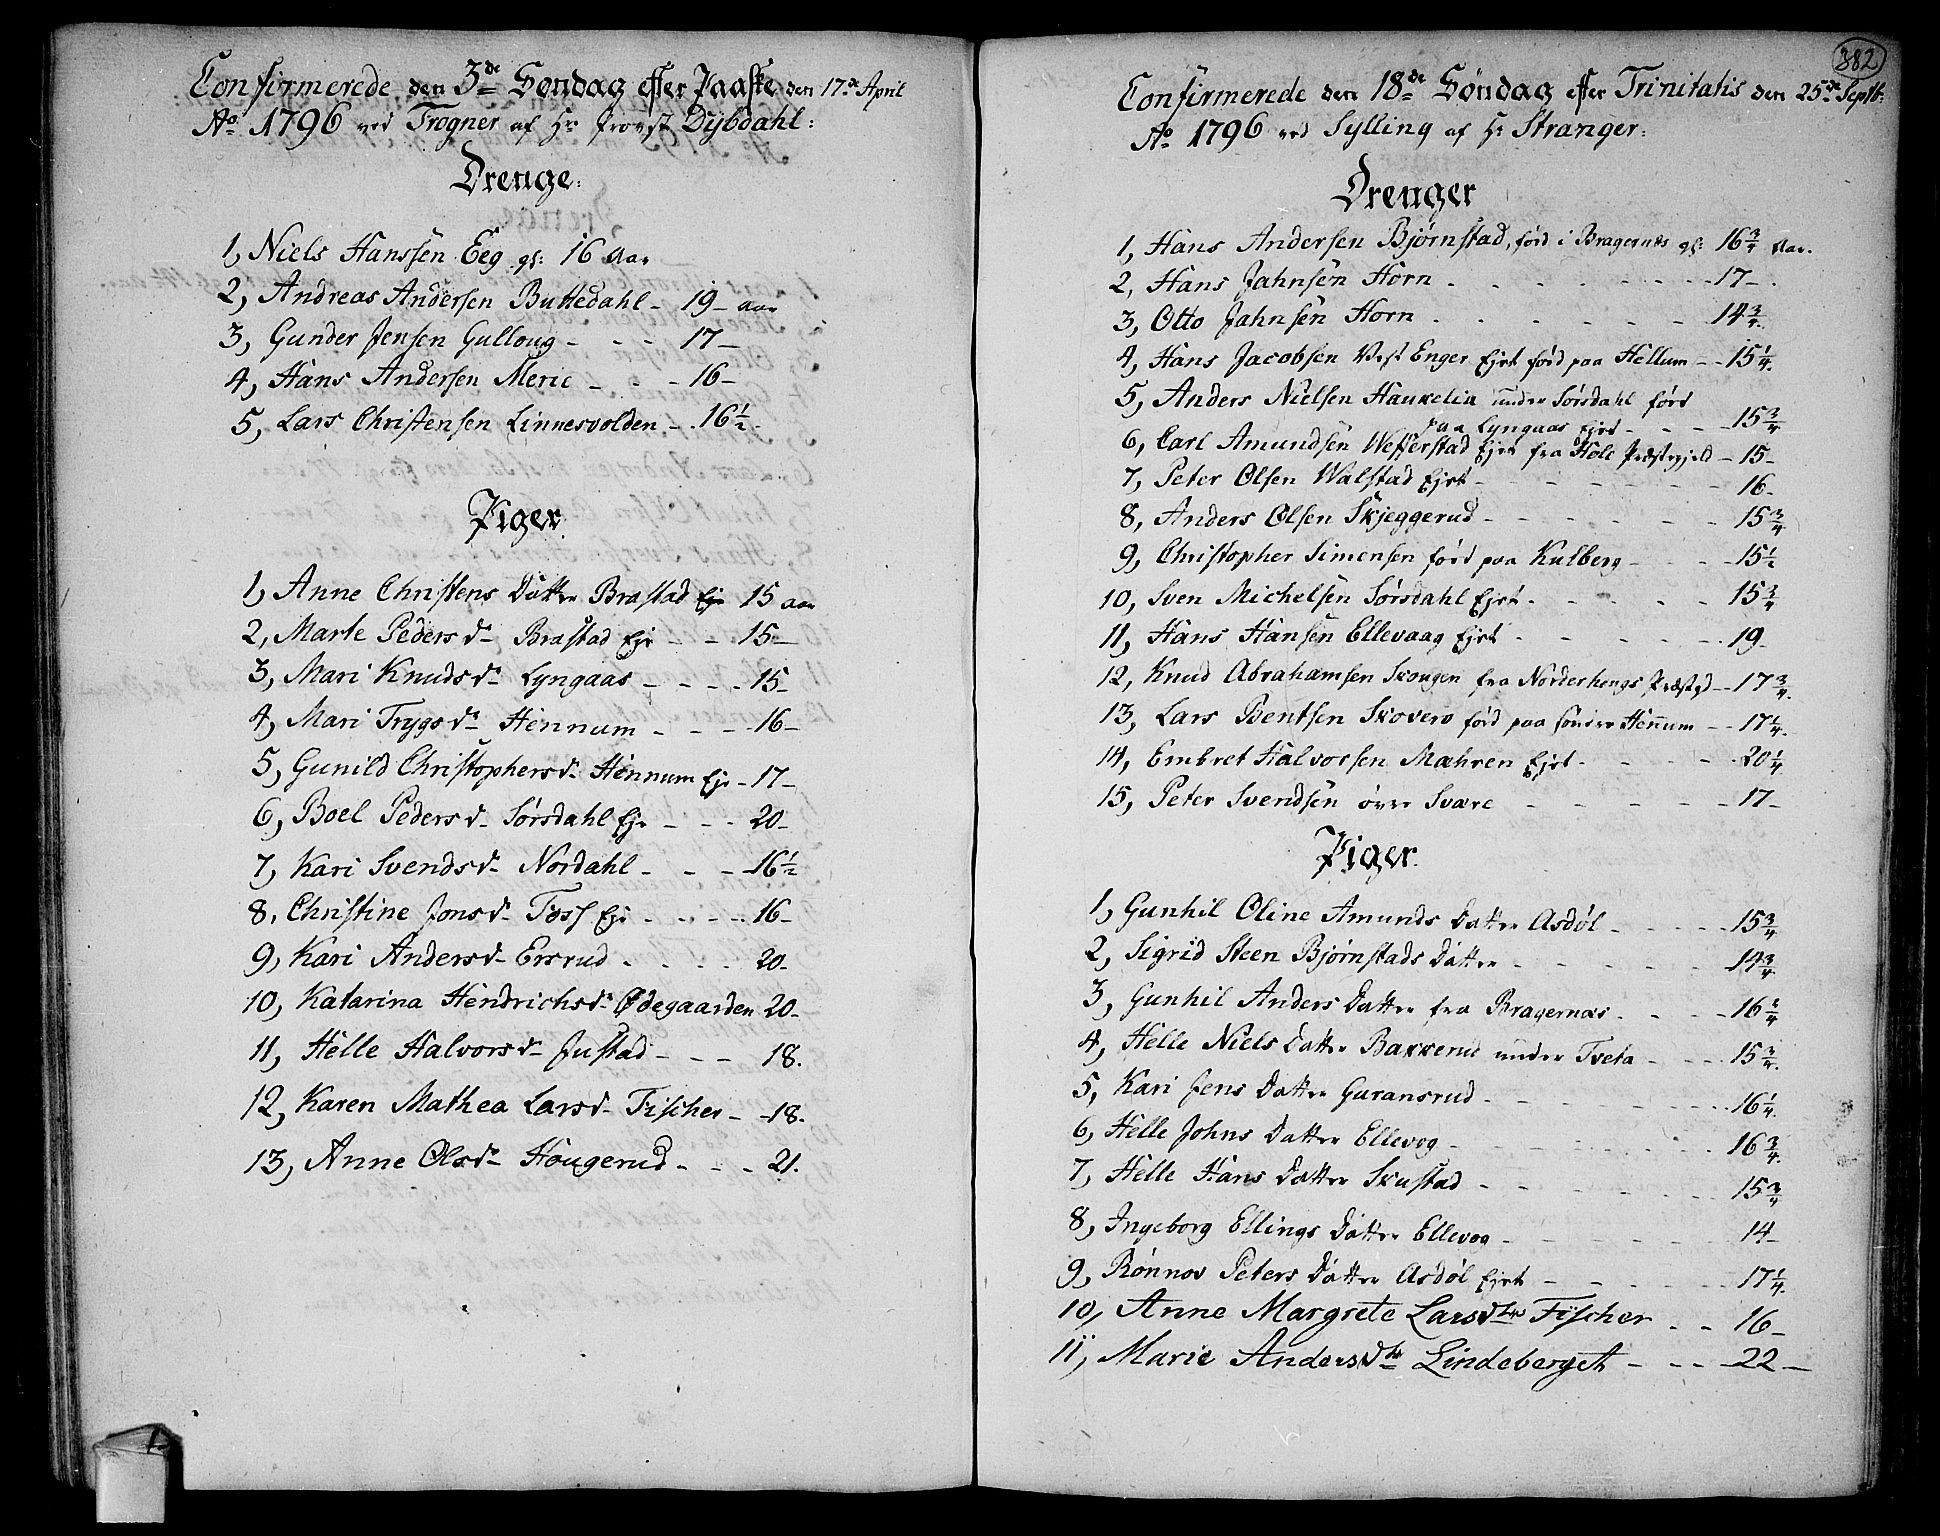 Confirmerede den 3de Søndag efter Paaske den 17de April
Ao 1796 ved Trogner af Hr Provst Dybdahl:
Drenge:
1, Niels Hanssen Eeg gl: 16 Aar
2, Andreas Andersen Buttedahl - 19 - aar
3, Gunder Jensen Gulloug - - - 17 -
4, Hans Andersen Merie - - - 16 -
5, Lars Christensen Linnesvolden - . 16 1/2 .
Piger
1, Anne Christens Datter Brastad Eje 15 aar
2, Marte Peders d. Brastad Eje - - 15 -
3, Mari Knuds d. Lyngaas - - - - 15 -
4, Mari Trygs d. Hennum - - - - 16 -
5, Gunild Christophers d. Hennum Eje - 17 -
6, Boel Peders d. Sørsdahl Eje - - - 20 -
7, Kari Svends d. Nordahl - - - 16 1/2
8, Christine Jons d. Foss Eje - - - - 16 -
9, Kari Anders d. Ersrud - - - - 20 -
10, Katarina Hendrichs d. Ødegaarden 20 -
11, Helle Halvors d. Justad - - - 18.
12, Karen Mathea Lars d. Fischer - - 18.
13, Anne Ols d. Hougerud - - - 21.
382
Confirmerede den 18de Søndag efter Trinitatis den 25de Septb:
Ao 1796 ved Sylling af Hr Stranger:
Drenger
1, Hans Andersen Bjørnstad, førd i Bragernæs gl: 16 3/4 Aar.
2, Hans Jahnsen Horn - - - - - - - - 17 - .
3, Otto Jahnsen Horn - - - - - - - 14 3/4.
4, Hans Jacobsen Vest Enger Ejet førd paa Hellum - - 15 1/4.
5, Anders Nielsen Haukelia under Sørsdahl førd
paa Lyngaas Ejet - - - - 15 3/4
6, Carl Amundsen Wefferstad Ejet fra Hole Præstegjeld - 15 -
7, Peter Olsen Walstad Ejet - - - - - - - 16 -
8, Anders Olsen Skjeggerud - - - - - - - 15 3/4
9, Christopher Simensen førd paa Kulberg - - - - 15 1/2
10, Sven Michelsen Sørsdahl Ejet - - - - - 15 3/4
11, Hans Hansen Ellevaag Ejet - - - - - - 19
12, Knud Abrahamsen Skougen fra Norderhougs Præstgd - - 17 3/4.
13, Lars Bentsen Skovero førd paa søndre Hennum - - 17 1/4.
14, Embret Halvorsen Mæhren Ejet - - - - - 20 1/4
15, Peter Svendsen øvre Svære - - - - - - 17 -
Piger.
1, Gunhil Oline Amunds Datter Asdøl - - - - - 15 3/4
2, Sigrid Steen Bjørnstads Datter - - - - - - 14 3/4
3, Gunhil Anders Datter fra Bragernæs - - - - 16 1/4
4, Helle Niels Datter Bakkerud under Tveta - - - 15 3/4.
5, Kari Jens Datter Guransrud - - - - - - - 16 1/4.
6, Helle Johns Datter Ellevog - - - - - - - 16 3/4.
7, Helle Hans Datter Skustad - - - - - - 15 3/4
8, Ingeborg Ellings Datter Ellevog - - - - - - 14 -
9, Rønnov Peters Datter Asdøl Ejet - - - - - 17 1/4.
10, Anne Margrete Larsdtr Fischer - - 16 -
11, Marie Andersdtr Lindeberget - - - - 22 -